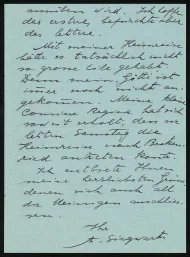 annähren wird. Ich hoffe
das erstere, befürchte aber
das letztere.
Mit meiner Heimreise
hätte es tatsächlich nicht
so grosse Eile gehabt.
Denn mein Götti ist
immer noch nicht an-
gekommen. Meine kleine
Cousine Regina hat sich
soweit erholt, dass sie
letzten Samstag die
Heimreise nach Becken-
ried antreten konnte.
Ich entbiete Ihnen
meine herzlichsten Grüsse,
denen sich auch all
die Meinigen anschlies-
sen.
Ihr
A. Siegwart